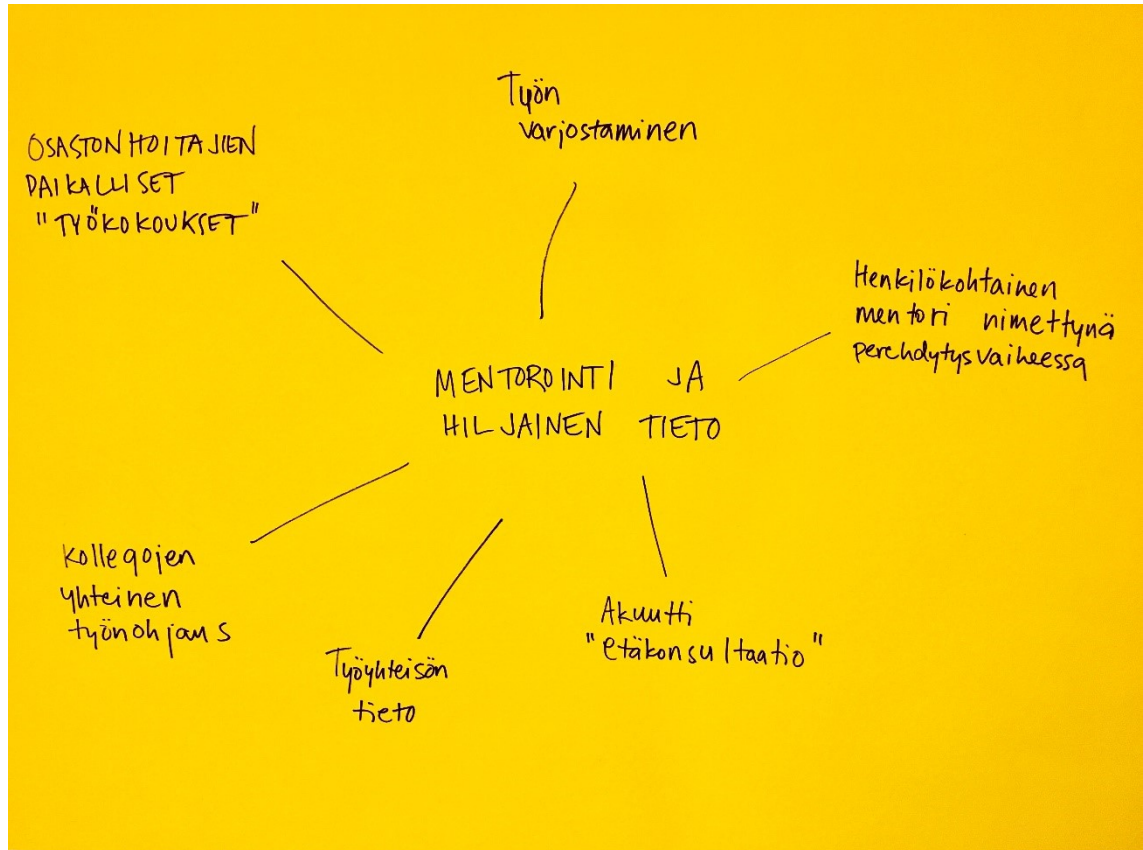 Työn
varjostaminen
OSASTONHOITAJIEN
PAIKALLISET
"TYÖKOKOUKSET"
Henkilökohtainen
mentori nimettynä
perehdytysvaiheessa
MENTOROINTI JA
HILJAINEN TIETO
kollegojen
yhteinen
työnohjaus
Työyhteisön
tieto
Akuutti
"etäkonsultaatio"